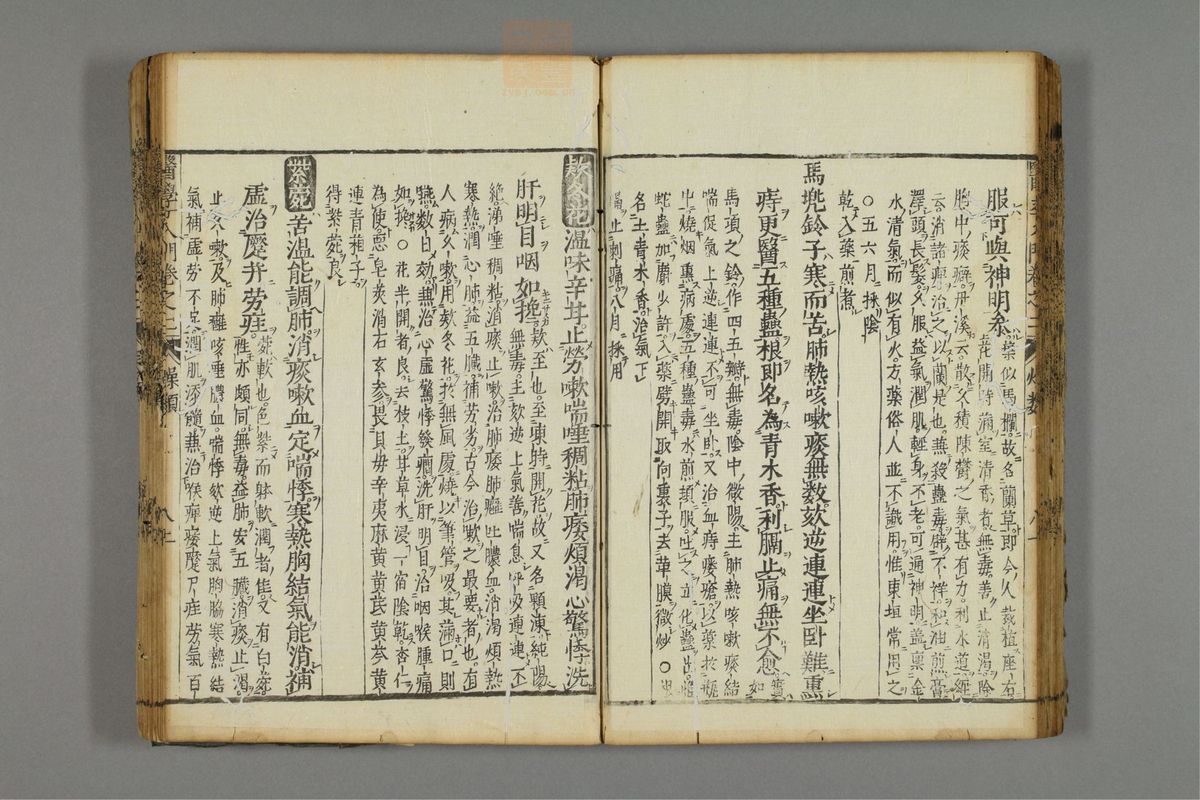 服可與神明參
葉似馬欄故名蘭草即今人栽植座右
花開時滿室清香者無毒善止消渴除
胸中痰癖丹溪云散久積陳鬱之氣甚有力利水道經
云消諸痺治之以蘭是也兼殺蠱毒辟不祥和油煎膏
澤頭長髮久服益氣潤肌輕身不老可通神明蓋稟金
水清氣而似有火方藥俗人並不識用惟東垣常用之
○五六月採陰
乾入藥煎煮
馬兜鈴子寒而苦肺熱咳嗽痰無數欬逆連連坐臥難熏
痔更醫五種蠱根即名為青木香利膈止痛無不愈
如
馬項之鈴作四五瓣無毒陰中微陽主肺熱咳嗽痰結
喘促氣上逆連連不可坐臥又治血痔瘻瘡以藥於瓶
中燒烟熏病處五種蠱毒水煎頓服吐之立化蠱出
蛇蠱加麝少許入藥劈開取向裏子去革膜微炒○根
名土青木香治氣下
膈止刺痛八月採用
欵冬花溫味辛甘止勞嗽喘唾稠粘肺痿煩渴心驚悸洗
肝明目咽如攙
欵至也至冬時開花故又名顆凍純陽
無毒主欬逆上氣善喘息呼吸連連不
絕涕唾稠粘消痰止嗽治肺痿肺癰吐膿血消渴煩熱
寒熱潤心肺益五臟補勞劣古今治嗽之最要者也有
人病久嗽用欵冬花於無風處燒以筆管吸其滿口則
嚥數日効兼治心虛驚悸癸癇洗肝明目治咽喉腫痛
如攙○花半開者良去枝土甘草水浸一宿陰乾杏仁
為使惡皂莢消石玄參畏貝母辛夷麻黃黃芪黃芩黃
連青葙子
得紫菀良
紫菀苦溫能調肺消痰嗽血定喘悸寒熱胸結氣能消補
虛治躄并勞疰
菀軟也色紫而躰軟潤者佳又有白菀
性亦頗同無毒益肺安五臟消痰止渴
止久嗽及肺癰咳唾膿血喘悸欬逆上氣胸脇寒熱結
氣補虛勞不足潤肌添髓兼治喉痺痿躄尸疰勞氣百
醫學入門卷之二